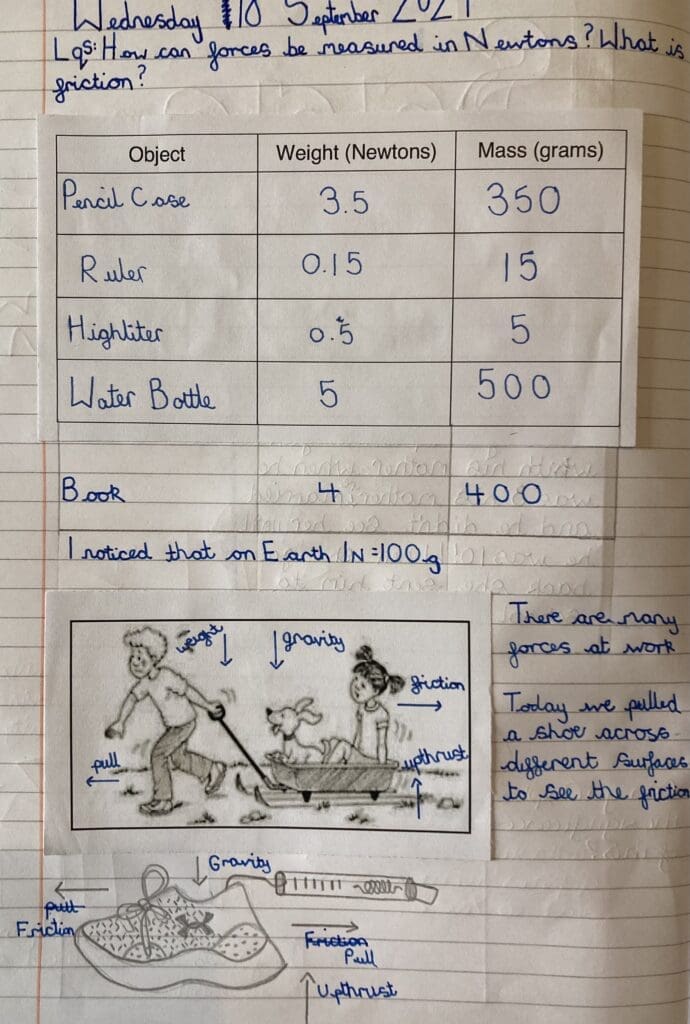 Wednesday 10 September 2021
Lqs: How can forces be measured in Newtons? What is
friction?
Object Weight (Newtons) Mass (grams)
Pencil Case 3.5 350
Ruler 0.15 15
Highliter 0.5 5
Water Bottle 5 500
Book 4 400
I noticed that on Earth 1N=100g
weight gravity
friction
pull
upthrust
There are many
forces at work
Today we pulled
a shoe across
different surfaces
to see the friction
Gravity
pull
Friction
Friction
Pull
Upthrust